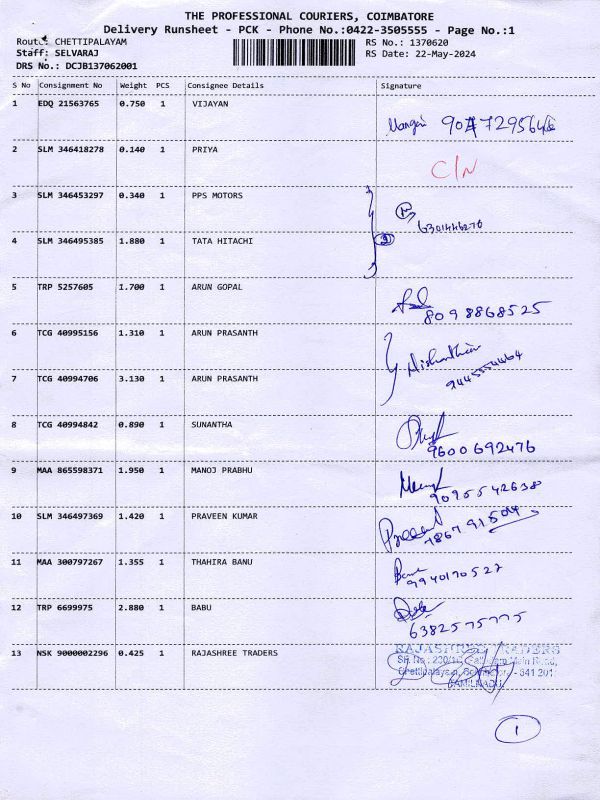 THE PROFESSIONAL COURIERS, COIMBATORE
Delivery Runsheet - PCK - Phone No.:0422-3505555 - Page No.:1
Route: CHETTIPALAYAM RS No.: 1370620
Staff: SELVARAJ RS Date: 22-May-2024
DRS No.: DCJB137062001
S No Consignment No Weight PCS Consignee Details Signature
1 EDQ 21563765 0.750 1 VIJAYAN
2 SLM 346418278 0.140 1 PRIYA C/N
3 SLM 346453297 0.340 1 PPS MOTORS
6301446276
4 SLM 346495385 1.880 1 TATA HITACHI
5 TRP 5257605 1.700 1 ARUN GOPAL
8098868525
6 TCG 40995156 1.310 1 ARUN PRASANTH
7 TCG 40994706 3.130 1 ARUN PRASANTH
8 TCG 40994842 0.890 1 SUNANTHA
9600692476
9 MAA 865598371 1.950 1 MANOJ PRABHU
9095542638
10 SLM 346497369 1.420 1 PRAVEEN KUMAR
11 MAA 300797267 1.355 1 THAHIRA BANU
9940170527
12 TRP 6699975 2.880 1 BABU
6382575775
13 NSK 9000002296 0.425 1 RAJASHREE TRADERS RAJASHREE TRADERS
Main Road,
641 201
TAMILNADU
1